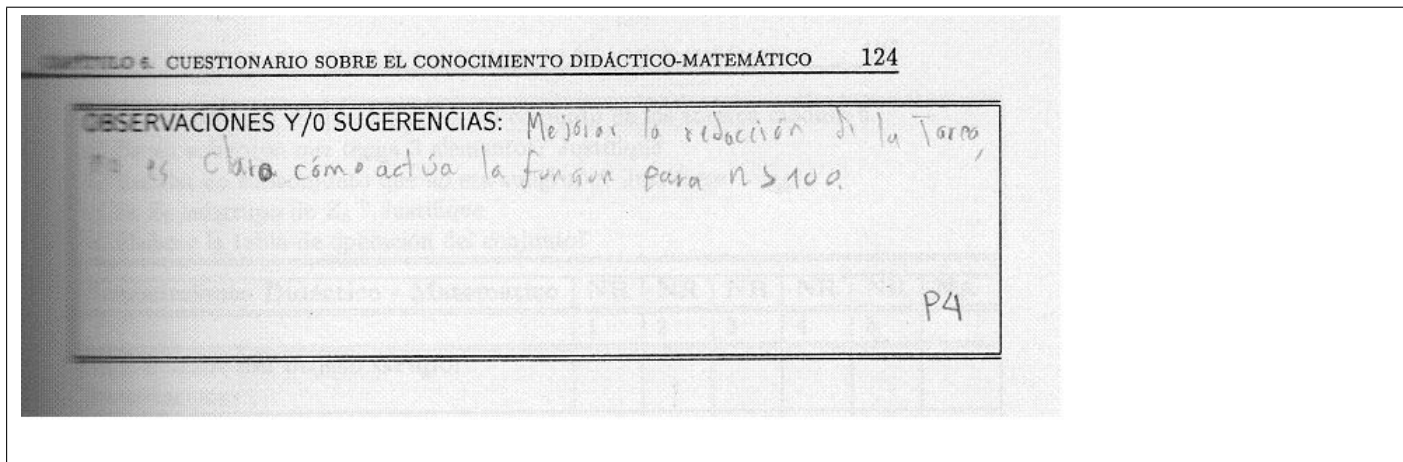 CAPÍTULO 6. CUESTIONARIO SOBRE EL CONOCIMIENTO DIDÁCTICO-MATEMÁTICO 124
OBSERVACIONES Y/0 SUGERENCIAS: Mejorar la redacción de la Tarea,
no es Clara cómo actúa la función para n > 100.
P4